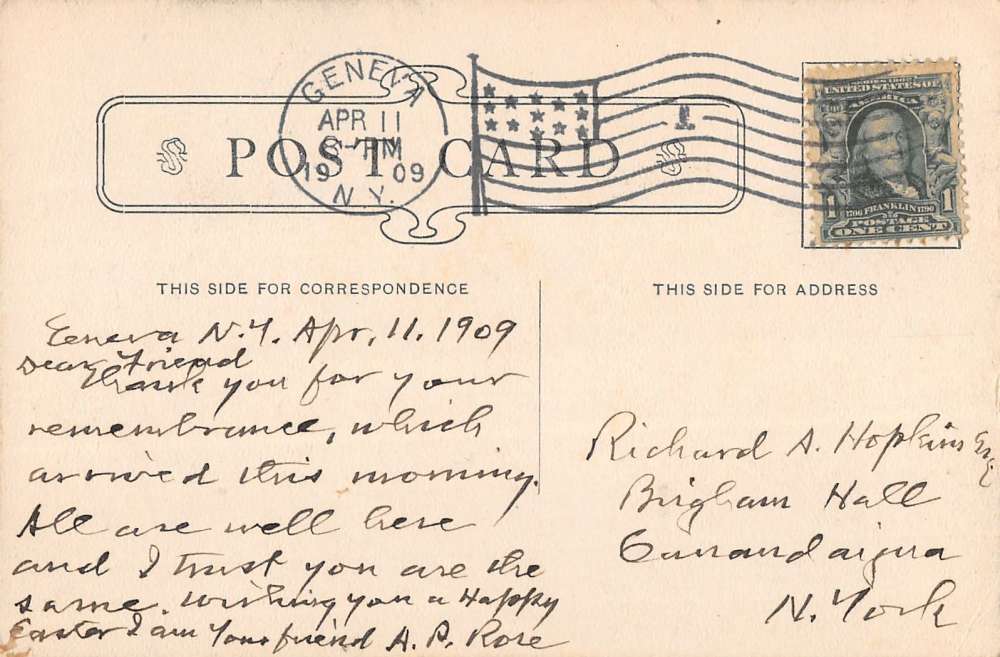 GENEVA
APR 11
8-PM
1909
N.Y.
1
POST CARD
SERIES 1902
UNITED STATES OF
AMERICA
1 1706 FRANKLIN 1790 1
POSTAGE
ONE CENT
THIS SIDE FOR CORRESPONDENCE
Geneva N.Y. Apr, 11, 1909
Dear Friend
Thank you for your
remembrance, which
arrived this morning.
All are well here
and I trust you are the
same. Wishing you a Happy
Easter I am Your friend A. P. Rose
THIS SIDE FOR ADDRESS
Richard A. Hopkins Esq
Brigham Hall
Canandaigua
N. York